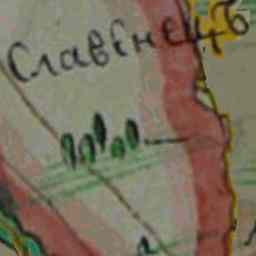 Славенецъ